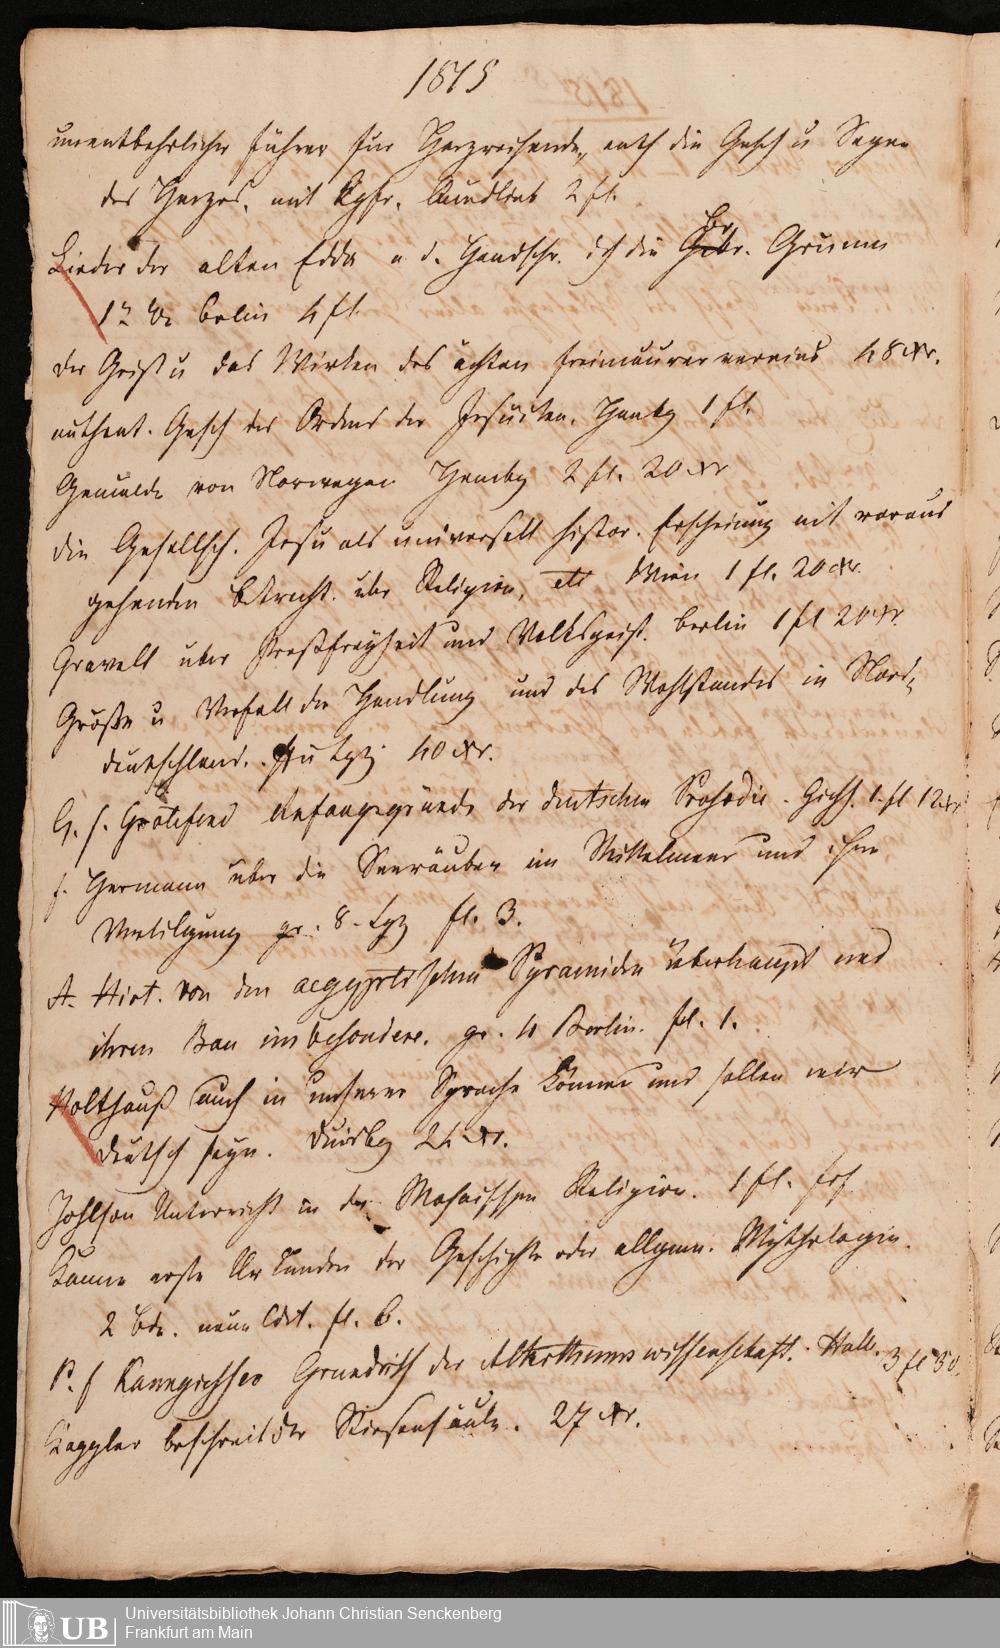 1815
unentbehrlicher Führer für Harzreisende, enth die Gesch u Sagen
des Harzes, mit Kpfr. 2 fl.
Lieder der alten Edda a d. Handschr. d die Br. Grimm
1r Bd Berlin 4 fl
der Geist u das Wirken des ächten Freimaurervereins 48 xr.
authent. Gesch des Ordens der Jesuiten. Hambg 1 fl.
Gemälde von Norwegen Hambg 2 fl. 20 xr
die Gesellsch. Jesu als universell histor. Erscheinung mit voraus
gehenden Betracht. über Religion, etc Wien 1 fl. 20 xr.
Gravell über Preßfreyheit und Volksgeist. Berlin 1 fl 20 xr.
Größe u Verfall der Handlung und des Wohlstandes in Nord,
deutschland. Lpzg 40 xr.
G. f. Grotefend Anfangsgründe der deutschen Prosodie. Gieß. 1 fl 12 xr
f. Hermann über die Seeräuber im Mittelmeer und ihre
Vertilgung gr. 8. Lpz fl. 3.
A. Hirt. von den aegyptischen Pyramiden überhaupt und
ihrem Bau insbesondere. gr. 4 Berlin. fl. 1.
Holthauß auch in unserer Sprache können und sollen wir
deutsch seyn. Duisbg 24 xr.
Johlson Unterricht in der Mosaischen Religion. 1 fl. frf
Kanne erste Urkunden der Geschichte oder allgem. Mythologie.
2 Bde. neue fl. 6.
P. f Kanngießser Grundriß der Alterthumswissenschaft. Hall. 3 fl 30.
Kappler beschreibt der Riesensäule. 27 xr.
Universitätsbibliothek Johann Christian Senckenberg
Frankfurt am Main
UB